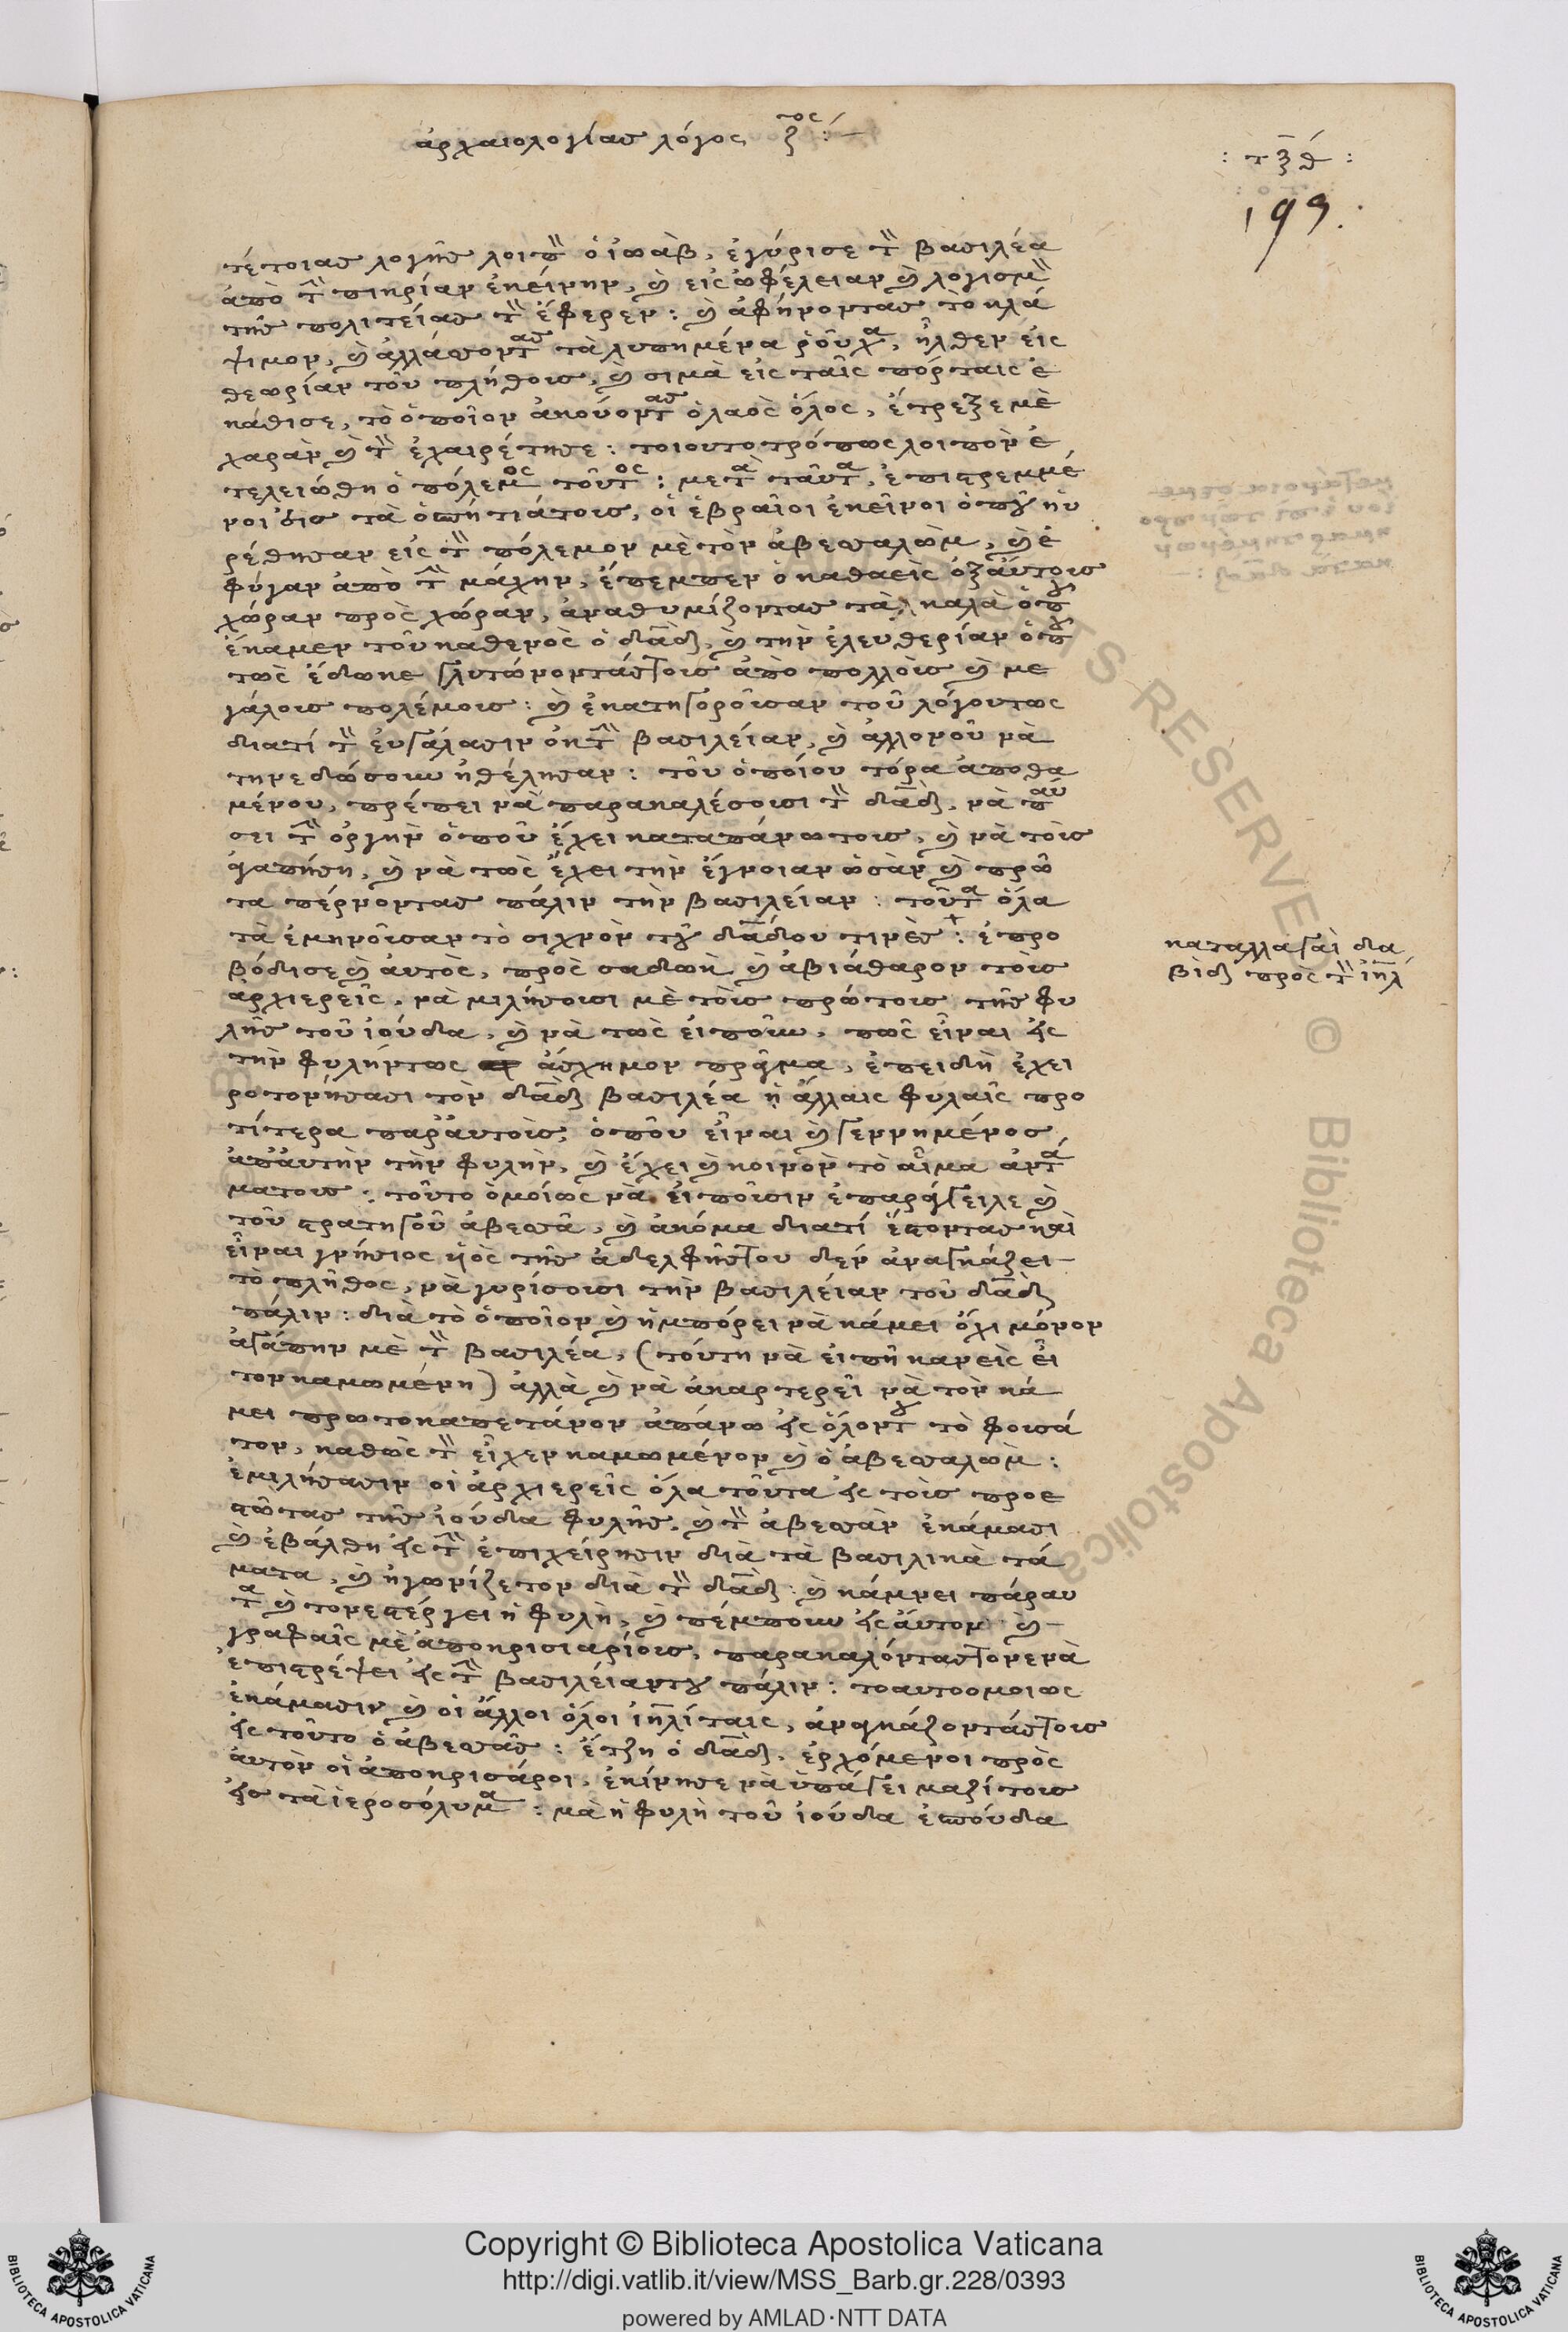 ἀρχαιολογίας λόγος ζ^τος :—
: τξθ :
199.
τέτοιας λογῆς λοιπὸν ὁ ἰωὰβ, ἐγύρισε τὸν βασιλέα
ἀπὸ τὴν πικρίαν ἐκείνην, καὶ εἰς ὠφέλειαν καὶ λογισμὸν
τῆς πολιτείας τὸν ἔφερεν : καὶ ἀφήνοντας τὸ κλά
ψιμον, καὶ ἀλλάσσοντας τὰ λυπημένα ῥοῦχα, ἦλθεν εἰς
θεωρίαν τοῦ πλήθους, καὶ σιμὰ εἰς ταῖς πόρταις ἐ
κάθισε, τὸ ὁποῖον ἀκούοντας ὁ λαὸς ὅλος, ἔτρεξε μὲ
χαρὰν καὶ τὸν ἐχαιρέτησε : τοιουτοτρόπως λοιπὸν ἐ
τελειώθη ὁ πόλεμος τοῦτος : μετὰ ταῦτα, ἐπιστρεμμέ
νοι εἰς τὰ ὀσπήτιάτους, οἱ ἑβραῖοι ἐκεῖνοι ὁποῦ ηὑ
ρέθησαν εἰς τὸν πόλεμον μὲ τὸν ἀβεσαλὼμ, καὶ ἐ
φύγαν ἀπὸ τὴν μάχην, ἔπεμπεν ὁ καθαεὶς ὀξαύτους
χώραν πρὸς χώραν, ἀναθυμίζοντας τὰ καλὰ ὁποῦ
ἔκαμεν τοῦ καθενὸς ὁ δαδ, καὶ τὴν ἐλευθερίαν ὁποῦ
τως ἔδωκε γλυτώνοντάςτους ἀπὸ πολλοὺς καὶ με
γάλους πολέμους : καὶ ἐκατηγοροῦσαν τοῦ λόγουτως
διατὶ τὸν ἐυγάλασιν ὀκ τὴν βασιλείαν, καὶ ἀλλονοῦ νὰ
τηνεδώσουν ἠθέλησαν : τοῦ ὁποίου τόρα ἀποθα
μένου, πρέπει νὰ παρακαλέσουσι τὸν δαδ, νὰ παύ
σει τὴν ὀργὴν ὁποῦ ἔχει καταπάνωτους, καὶ νὰ τοὺς
ἀγαπήση, καὶ νὰ τως ἔχει τὴν ἔγνοιαν ὡσὰν καὶ πρῶ
τα πέρνοντας πάλιν τὴν βασιλείαν : τοῦτα ὅλα
τὰ ἐμηνοῦσαν τὸ συχνὸν τοῦ δαδου τινές : ἐπρο
βόδισε καὶ ἀυτὸς, πρὸς σαδωκ καὶ ἀβιάθαρον τοὺς
ἀρχιερεῖς, νὰ μιλήσουσι μὲ τοὺς πρώτους τῆς φυ
λῆς τοῦ ἰούδα, καὶ νὰ τως εἰποῦν, πῶς εἶναι εἰς
τὴν φυλήντως ἄσχημον πρᾶγμα, ἐπειδὴ ἐχει
ροτονήσασι τὸν δαδ βασιλέα ἡ ἄλλαις φυλαῖς προ
τίτερα παρἀυτοὺς, ὁποῦ εἶναι καὶ γεννημένος
ἀπἀυτὴν τὴν φυλὴν, καὶ ἔχει καὶ κοινὸν τὸ αἷμα ἀντά
ματους : τοῦτο ὁμοίως νὰ εἰποῦσιν ἐπαράγγειλε καὶ
τοῦ στρατηγοῦ ἀβεσσᾶ, καὶ ἀκόμα διατὶ ἔστοντας καὶ
εἶναι γνήσιος ὑὸς τῆς ἀδελφῆςτου δὲν ἀναγκάζει
τὸ πλῆθος, νὰ γυρίσουσι τὴν βασιλείαν τοῦ δαδ
πάλιν : διὰ τὸ ὁποῖον καὶ ἠμπόρει νὰ κάμει ὄχι μόνον
ἀγάπην μὲ τὸν βασιλέα, (τούτη νὰ εἰπῆ κανεὶς εἶ
τον καμωμένη) ἀλλὰ καὶ νὰ ἀκαρτερεῖ νὰ τὸν κά
μει πρωτοκαπετάνον ἀπάνω εἰς ὅλοντου τὸ φουσά
τον, καθὼς τὸν εἶχεν καμωμένον καὶ ὁ ἀβεσαλὼμ :
ἐμιλήσασιν οἱ ἀρχιερεῖς ὅλα τοῦτα εἰς τοὺς προε
στῶτας τῆς ἰούδα φυλῆς, καὶ τὸν ἀβεσσὰν ἐκάμασι
καὶ ἐβάλθη εἰς τὴν ἐπιχείρησιν διὰ τὰ βασιλικὰ τά
ματα, καὶ ἠγωνίζετον διὰ τὸν δαδ : καὶ κάμνει πάραυ
τα καὶ τονεστέργει ἡ φυλὴ, καὶ πέμπουν εἰς ἀυτὸν καὶ
γραφαῖς μὲ ἀποκρισιαρίους, παρακαλόντάςτονενὰ
ἐπιστρέψει εἰς τὴν βασιλείαντου πάλιν : τοαυτοομοιως
ἐκάμασιν καὶ οἱ ἄλλοι ὅλοι ἰηλίταις, ἀναγκάζοντάςτους
εἰς τοῦτο ὁ ἀβεσσᾶς : ἔτζη ὁ δαδ, ἐρχόμενοι πρὸς
ἀυτὸν οἱ ἀποκρισάροι, ἐκίνησε νὰ ὑπάγει μαζίτους
εἰς τὰ ἱεροσόλυμα : μὰ ἡ φυλὴ τοῦ ἰούδα ἐσπούδα
καταλλαγαὶ δα
βὶδ πρὸς τὸν ἰηλ
Copyright © Biblioteca Apostolica Vaticana
http://digi.vatlib.it/view/MSS_Barb.gr.228/0393
powered by AMLAD·NTT DATA
BIBLIOTECA APOSTOLICA VATICANA
BIBLIOTECA APOSTOLICA VATICANA